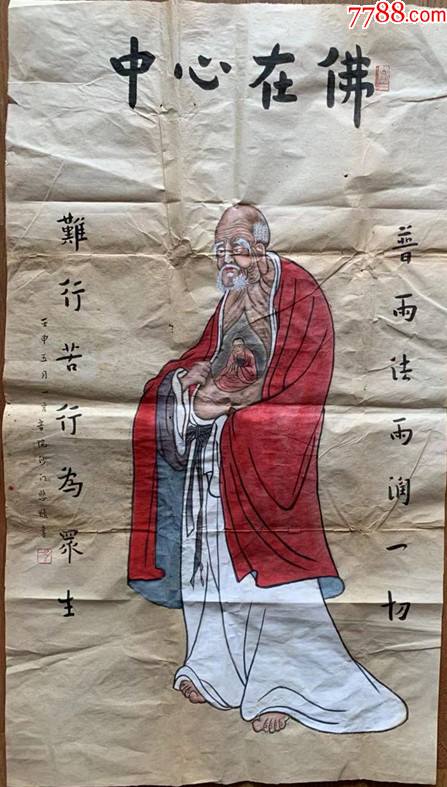 7788.com
佛在心中
普雨法雨潤一切
難行苦行為眾生
壬申五月